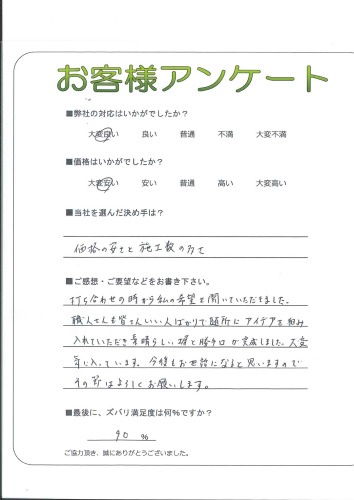 お客様アンケート
■弊社の対応はいかがでしたか？
大変良い 良い 普通 不満 大変不満
■価格はいかがでしたか？
大変安い 安い 普通 高い 大変高い
■当社を選んだ決め手は？
価格の安さと施工数の多さ
■ご感想・ご要望などをお書き下さい。
打ち合わせの時から私の希望を聞いていただきました。
職人さんも皆さんいい人ばかりで随所にアイデアを組み
入れていただき素晴らしい塀と勝手口が完成しました。大変
気に入っています。今後もお世話になると思いますので
その節はよろしくお願いします。
■最後に、ズバリ満足度は何％ですか？
90 %
ご協力頂き、誠にありがとうございました。